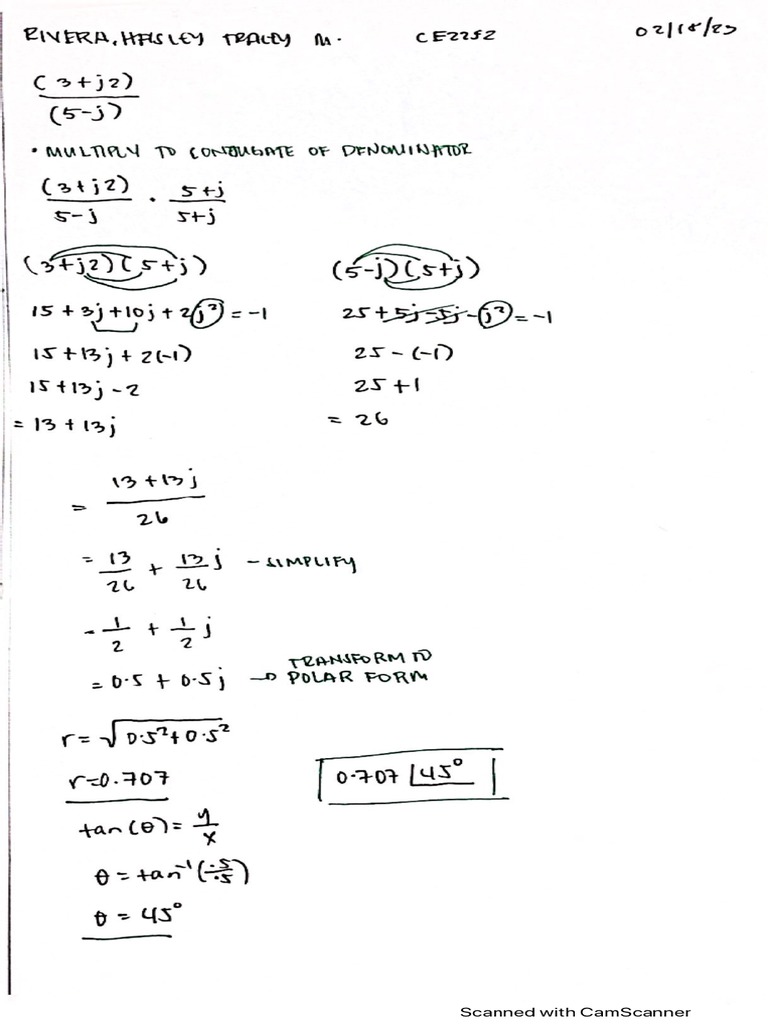 RIVERA, HEISLEY TRACEY M. CE22S2 02/18/23
(3+j2)
(5-j)
• MULTIPLY TO CONJUGATE OF DENOMINATOR
(3+j2) . 5+j
5-j 5+j
(3+j2)(5+j) (5-j)(5+j)
15 + 3j+10j + 2j² = -1 25 +5j-5j - j² = -1
15+13j + 2(-1) 25 - (-1)
15+13j - 2 25 +1
= 13 + 13j = 26
13 +13j
=
26
= 13 + 13 j - SIMPLIFY
26 26
= 1 + 1 j
2 2
= 0.5 + 0.5j → TRANSFORM TO
POLAR FORM
r = √0.5²+0.5²
r=0.707 0.707 ∠45°
tan(θ) = y
x
θ = tan⁻¹(.5/.5)
θ = 45°
Scanned with CamScanner